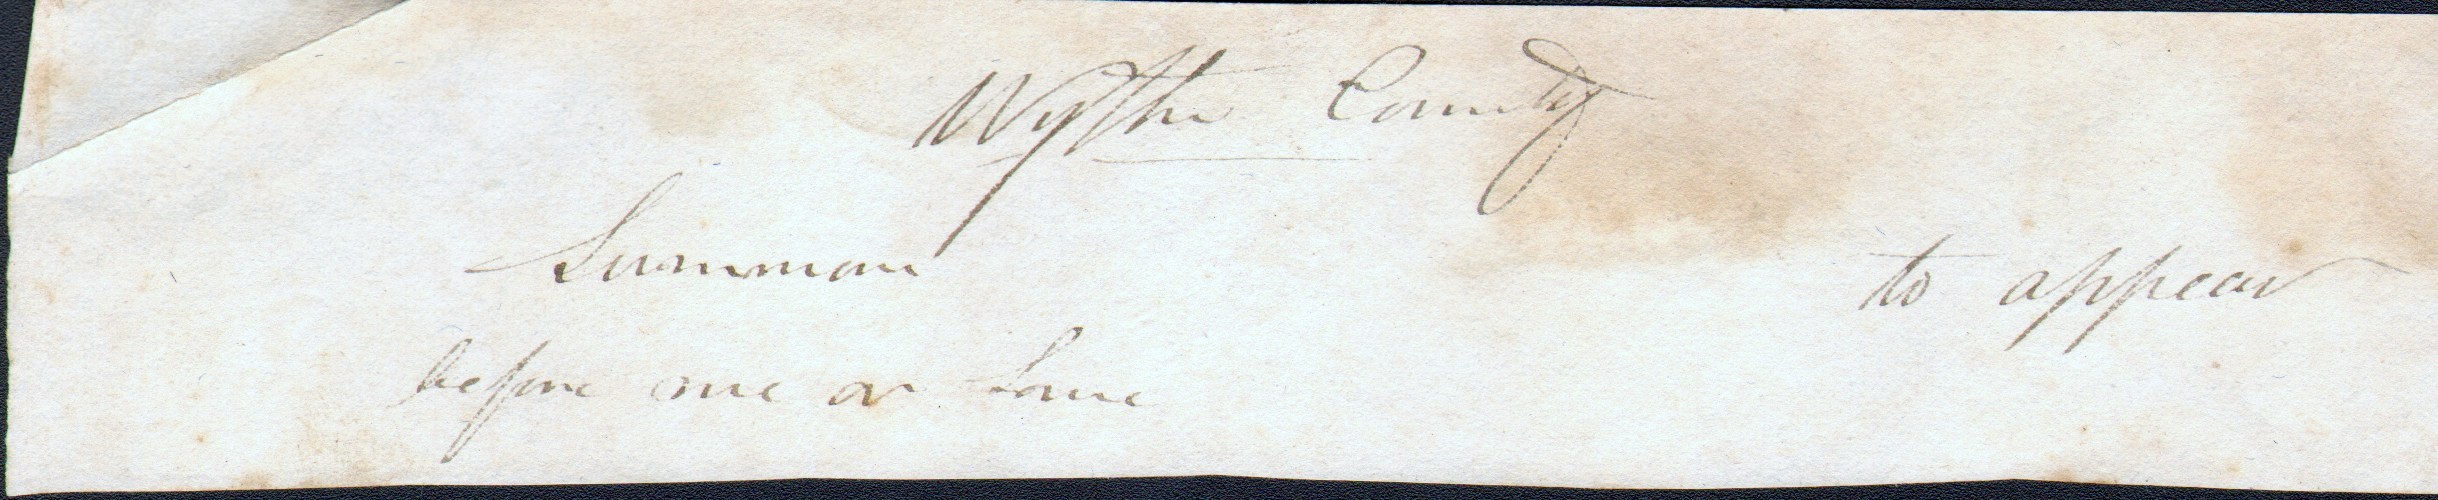 Wythe County
Summon to appear
before me or Some